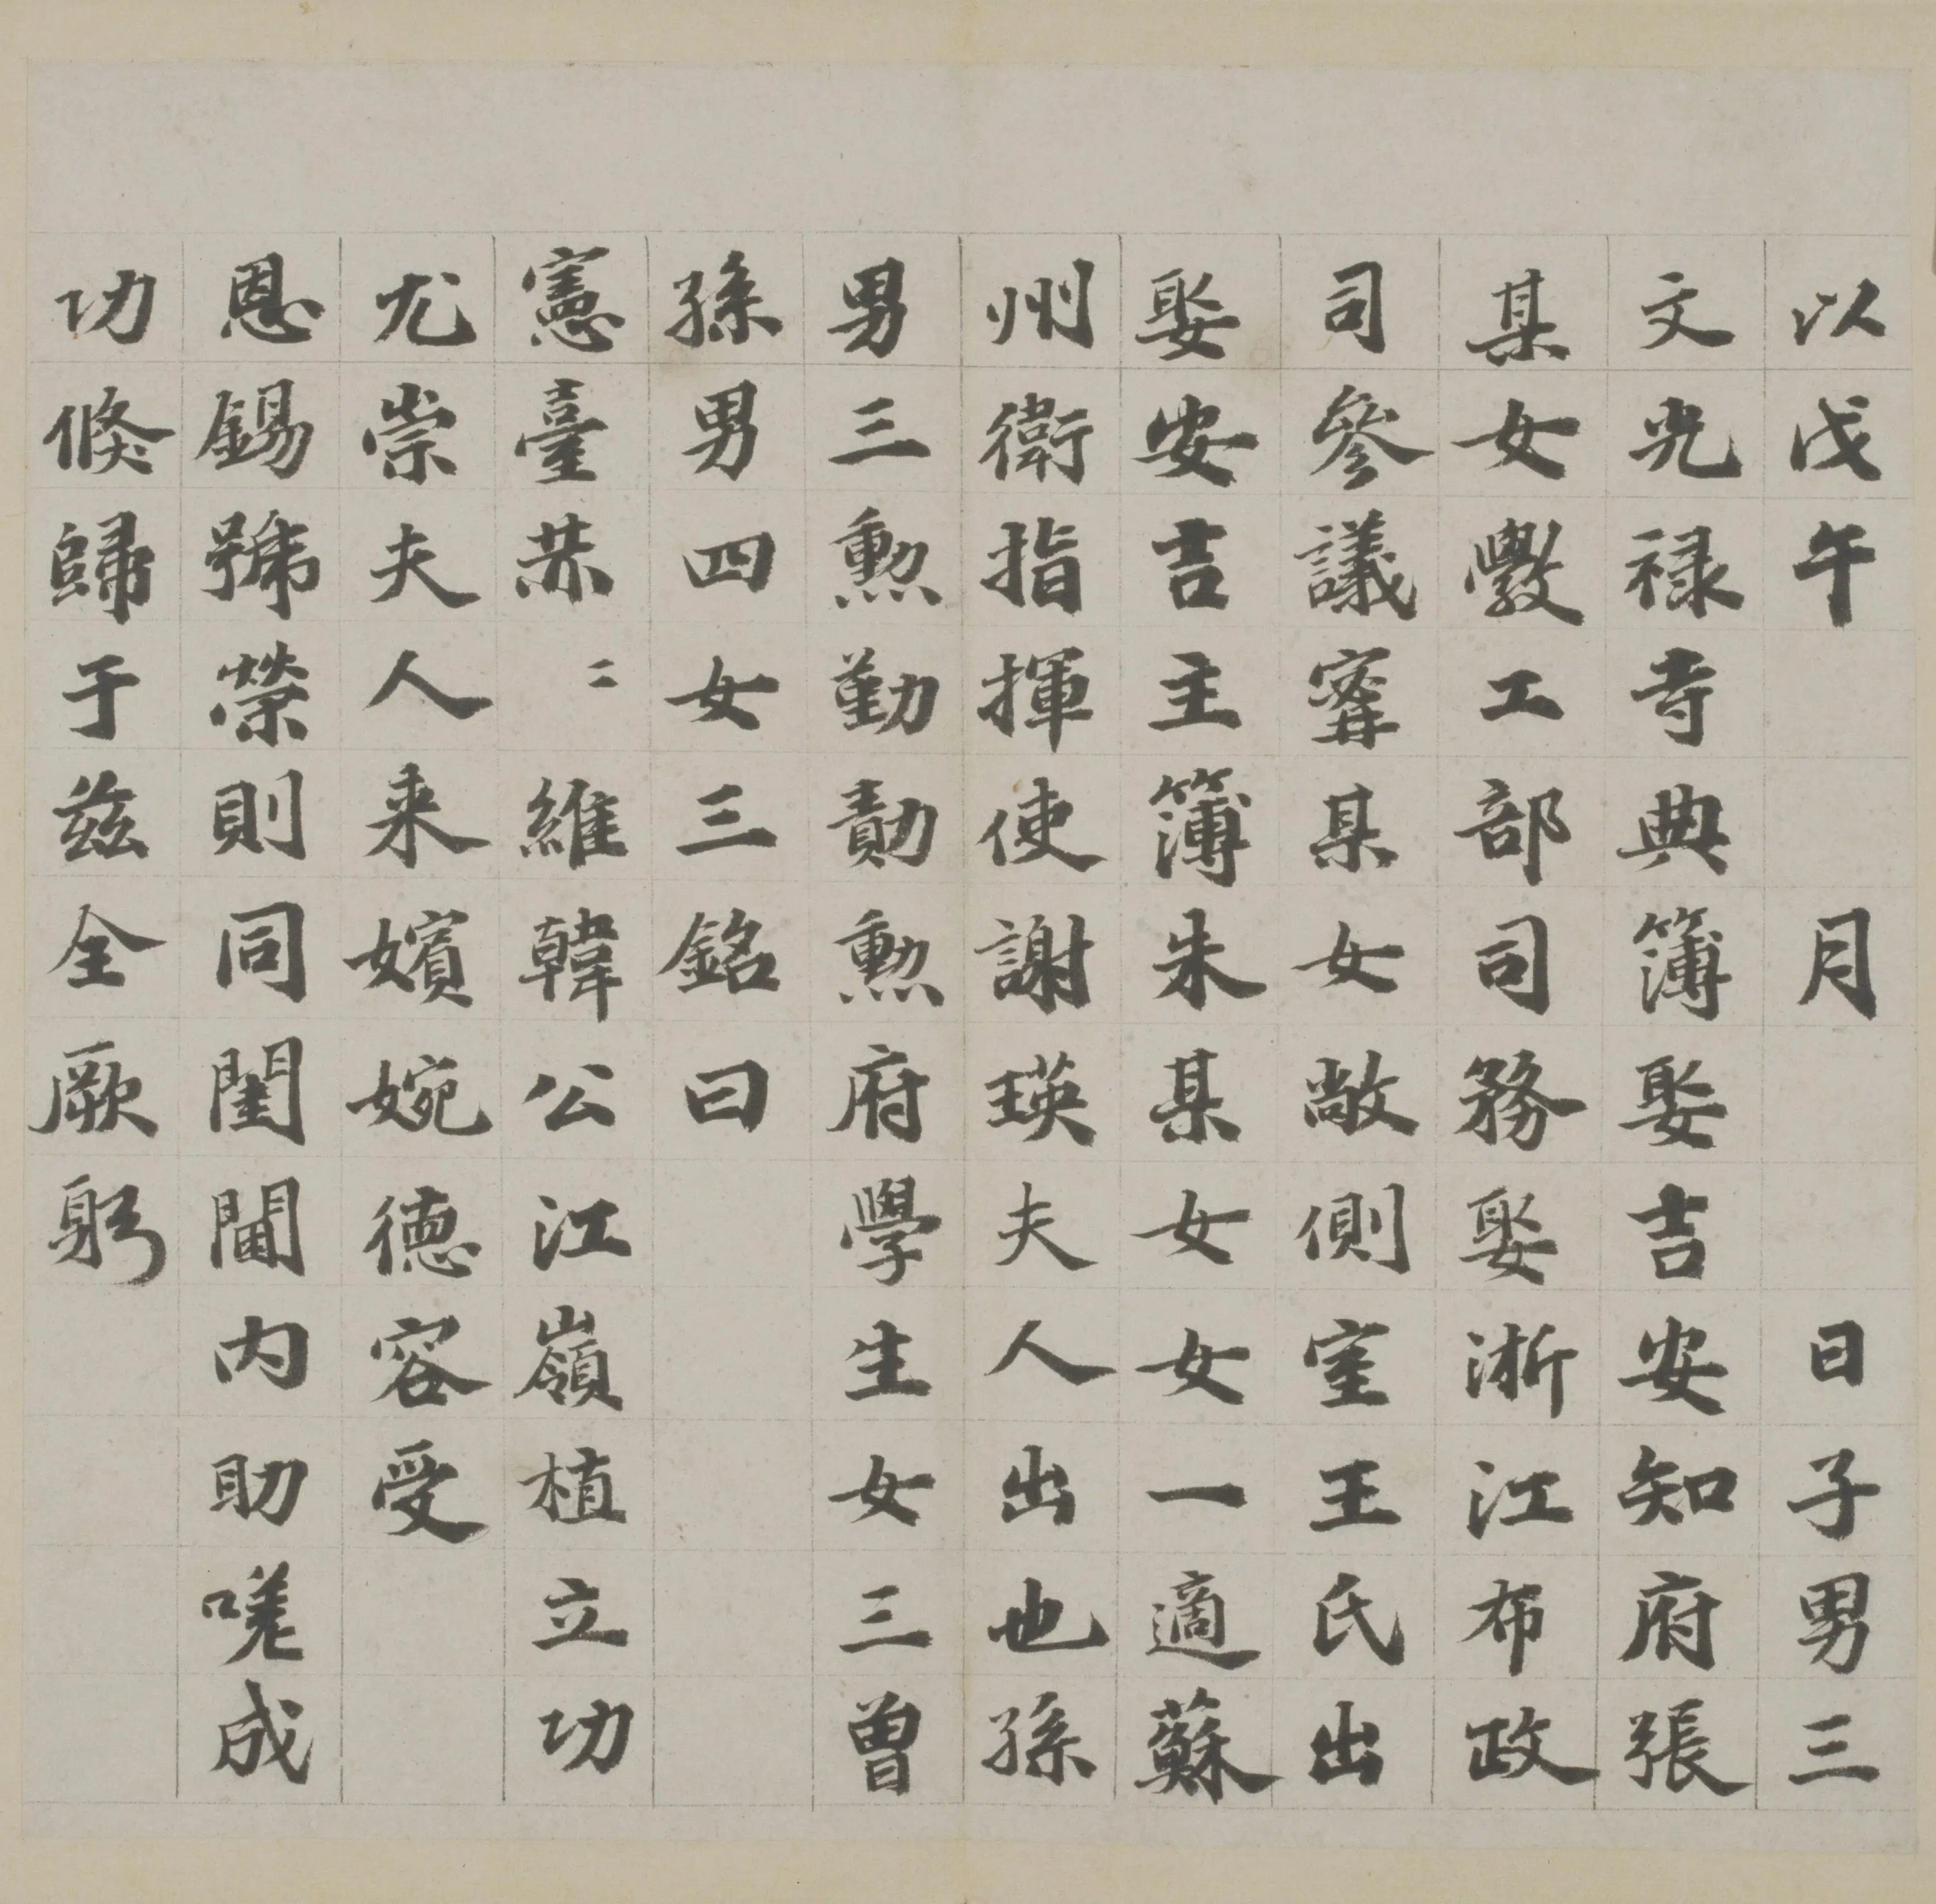 以戊午 月 日子男三
文光禄寺典簿娶吉安知府張
某女斆工部司務娶浙江布政
司參議寗某女敞側室王氏出
娶安吉主簿朱某女女一適蘇
州衛指揮使謝瑛夫人出也孫
男三勲勤勣勲府學生女三曽
孫男四女三銘曰
憲臺 維韓公江嶺植立功
尤崇夫人来嬪婉德容受
恩錫號榮則同閨閫内助嗟成
功倏歸于兹全厥躬